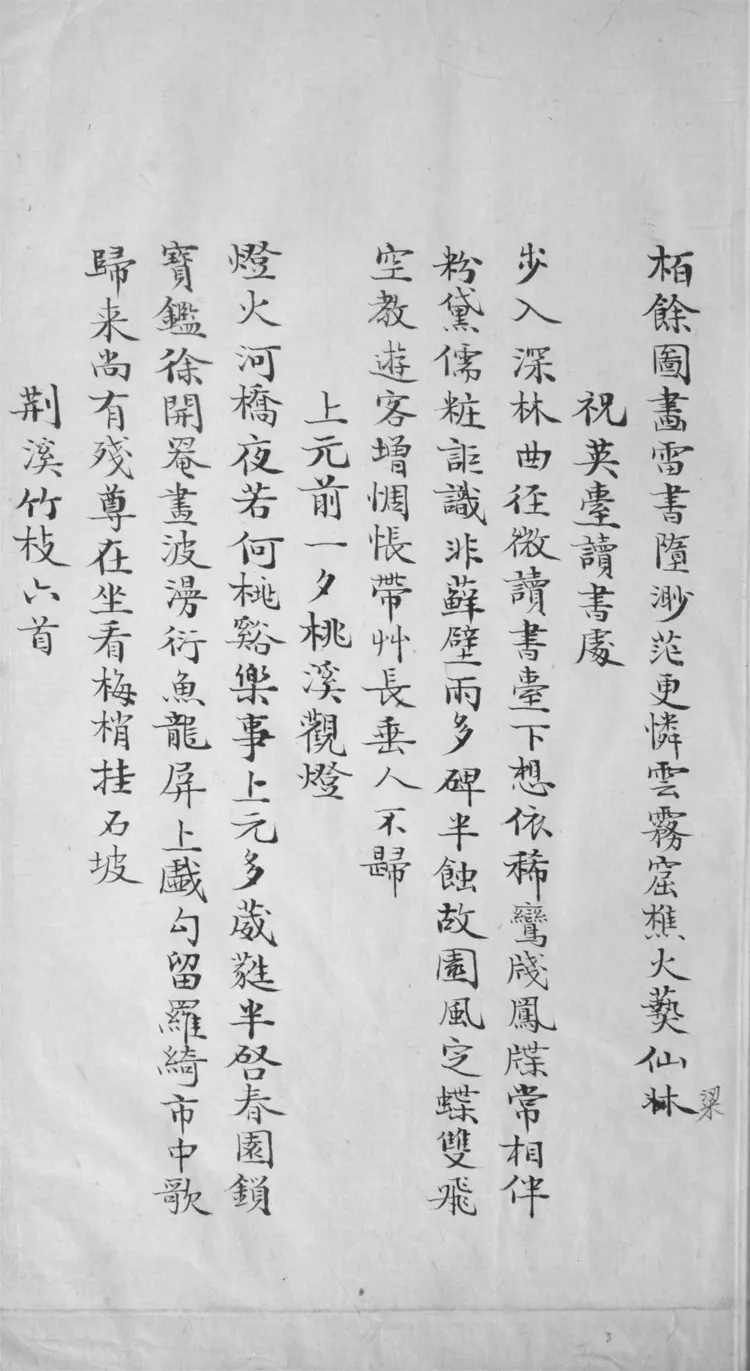 栢餘圖畵雷書墮渺茫更憐雲霧窟樵火爇仙牀
梁
祝英臺讀書處
步入深林曲徑微讀書臺下想依稀鸞牋鳳牒常相伴
粉黛儒粧詎識非蘚壁雨多碑半蝕故園風定蝶雙飛
空教遊客增惆悵帶艸長垂人不歸
上元前一夕桃溪觀燈
燈火河橋夜若何桃谿樂事上元多葳蕤半啓春園鎖
寶鑑徐開罨畫波漫衍魚龍屏上戲勾留羅綺市中歌
歸来尚有殘尊在坐看梅梢挂石坡
荆溪竹枝六首